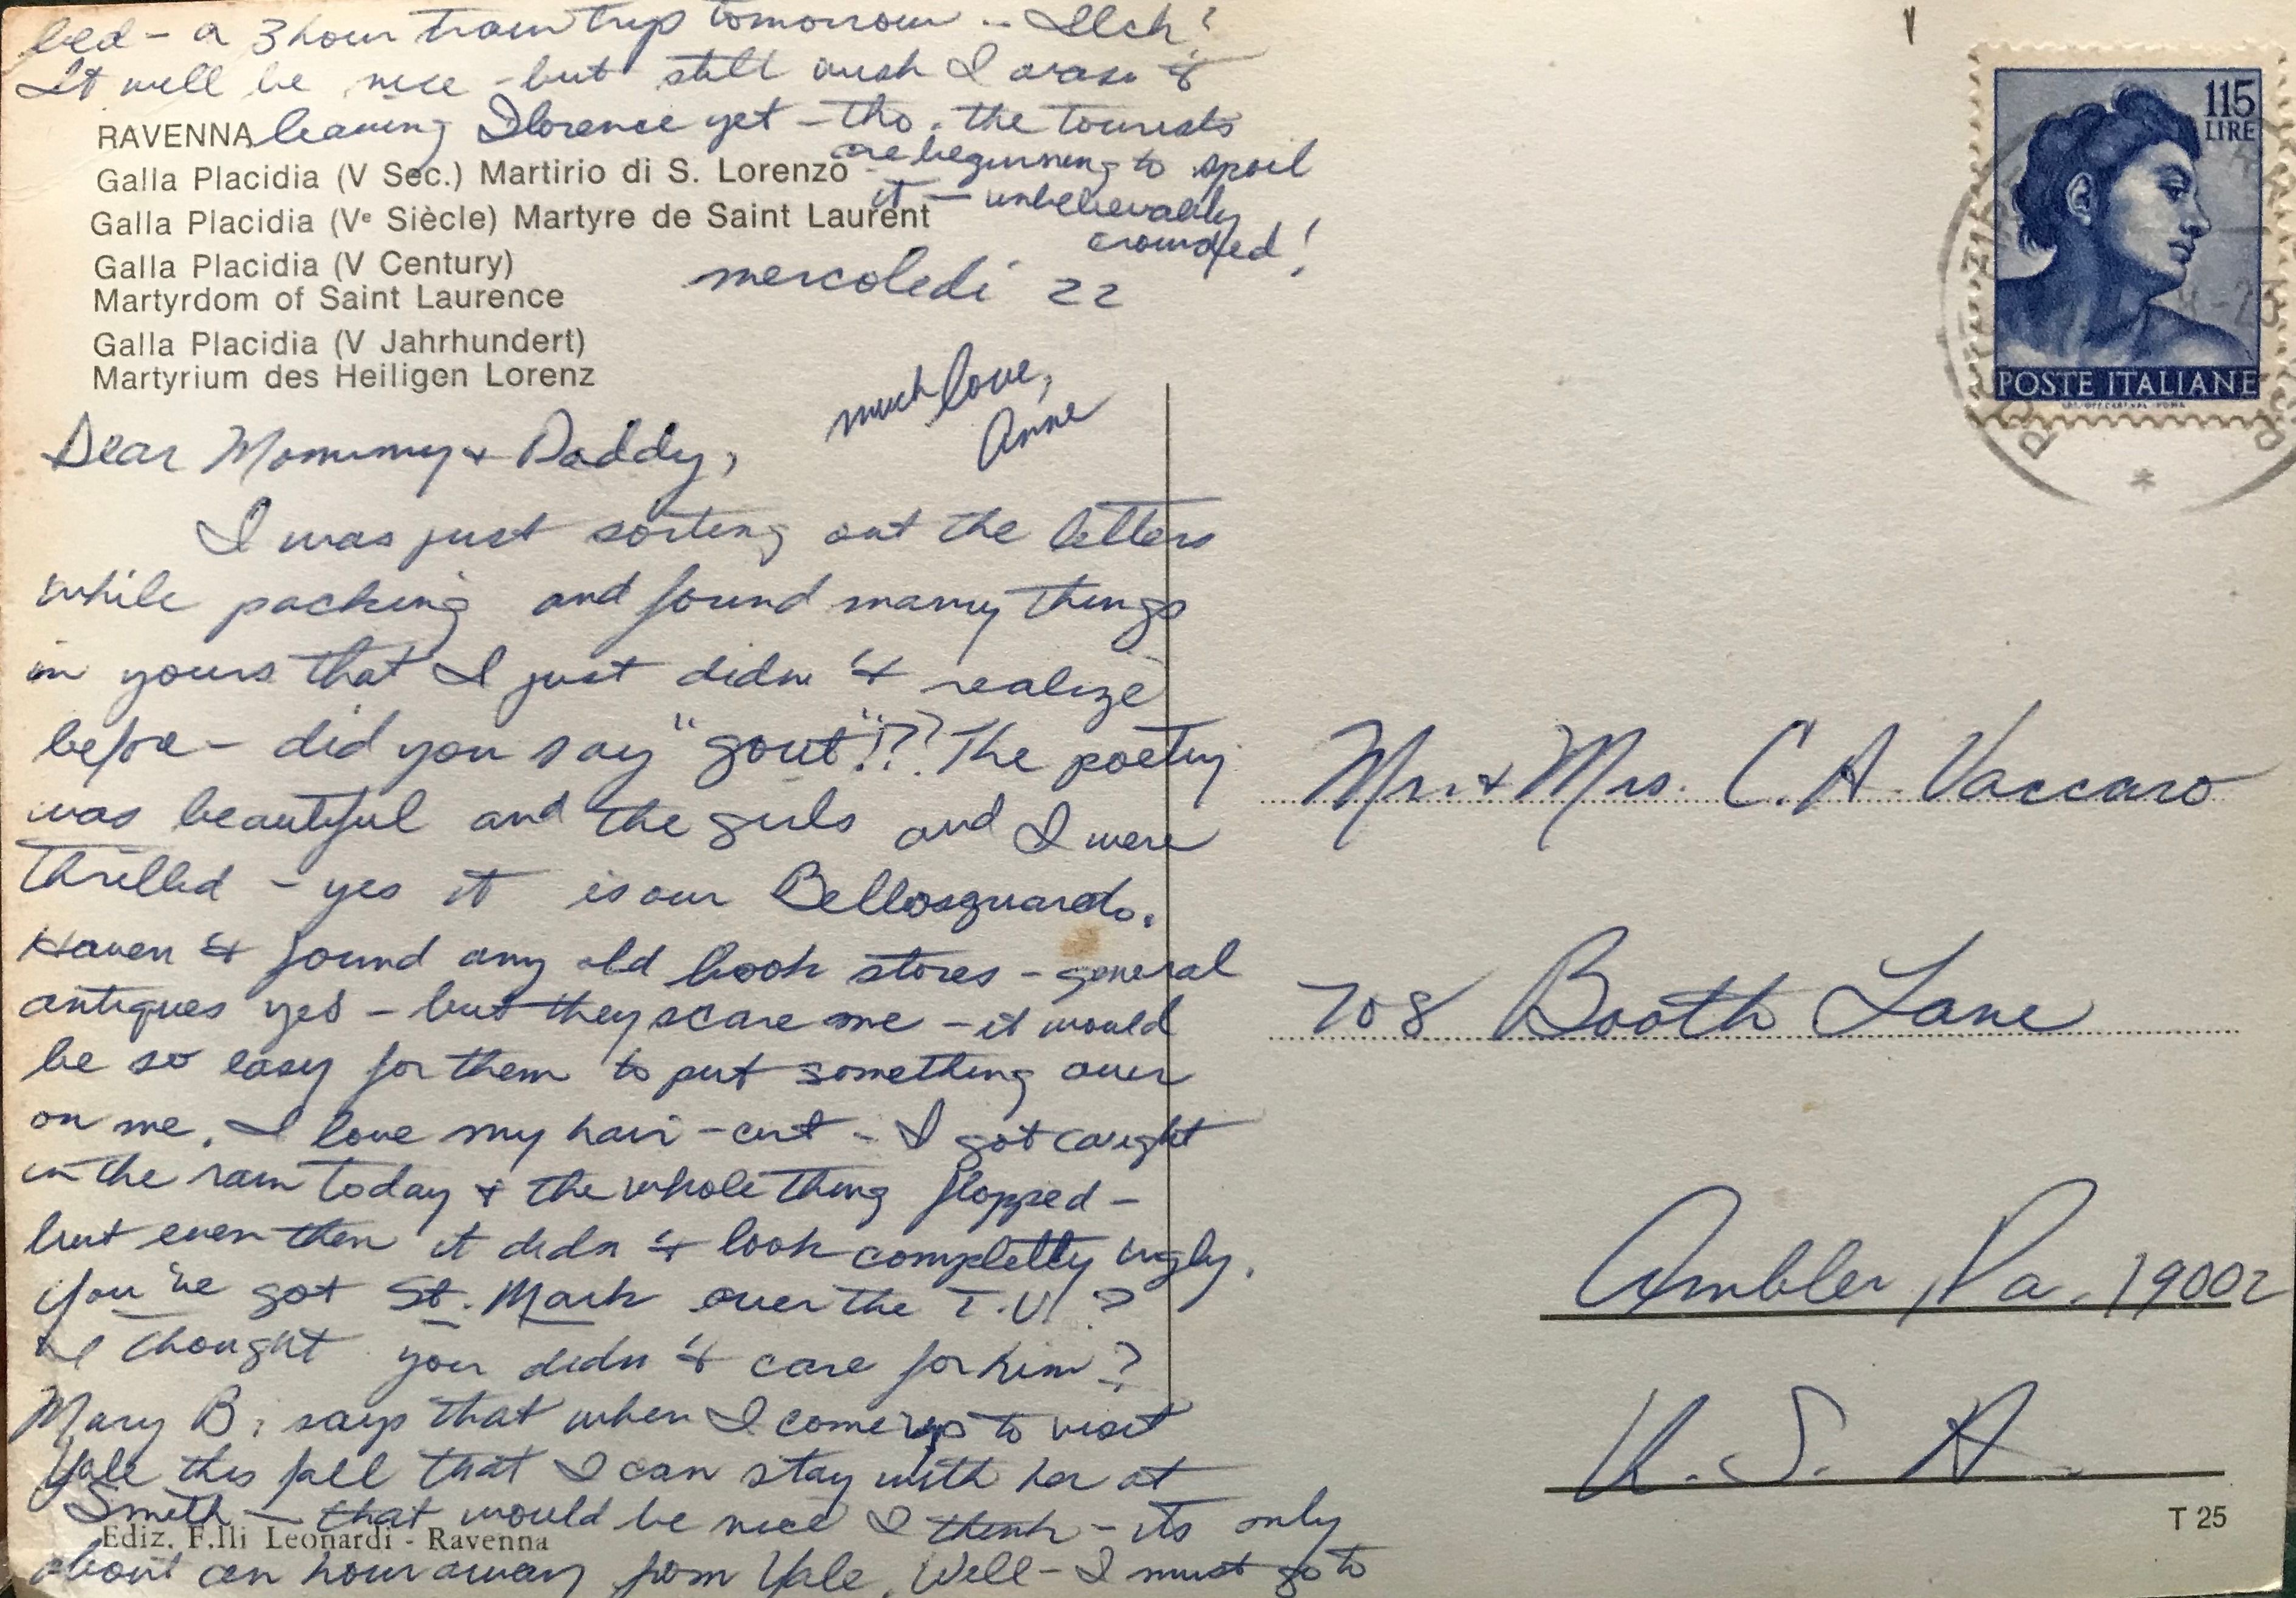 bed - a 3 hour train trip tomorrow -- Ilch!
It will be nice - but still wish I wasn't
leaving Florence yet - tho. the tourists
are beginning to spoil
it - unbelievably
crowded!
RAVENNA
Galla Placidia (V Sec.) Martirio di S. Lorenzo
Galla Placidia (Vᵉ Siècle) Martyre de Saint Laurent
Galla Placidia (V Century)
Martyrdom of Saint Laurence
Galla Placidia (V Jahrhundert)
Martyrium des Heiligen Lorenz
mercoledi 22
much love,
Anne
Dear Mommy + Daddy,
I was just sorting out the letters
while packing and found many things
in yours that I just didn't realize
before - did you say "gout"!?? The poetry
was beautiful and the girls and I were
thrilled - yes it is our Bellosguardo.
Haven't found any old book stores - general
antiques yes - but they scare me - it would
be so easy for them to put something over
on me. I love my hair-cut - I got caught
in the rain today + the whole thing flopped -
but even then it didn't look completly ugly.
You've got St. Mark over the T.V.?
I thought you didn't care for him?
Mary B. says that when I come up to visit
Yale this fall that I can stay with her at
Smith - that would be nice I think - its only
about an hour away from Yale. Well - I must go to
Ediz. F.lli Leonardi - Ravenna
115
LIRE
POSTE ITALIANE
Mr. + Mrs. C. A. Vaccaro
708 Booth Lane
Ambler, Pa. 19002
U. S. A.
T 25